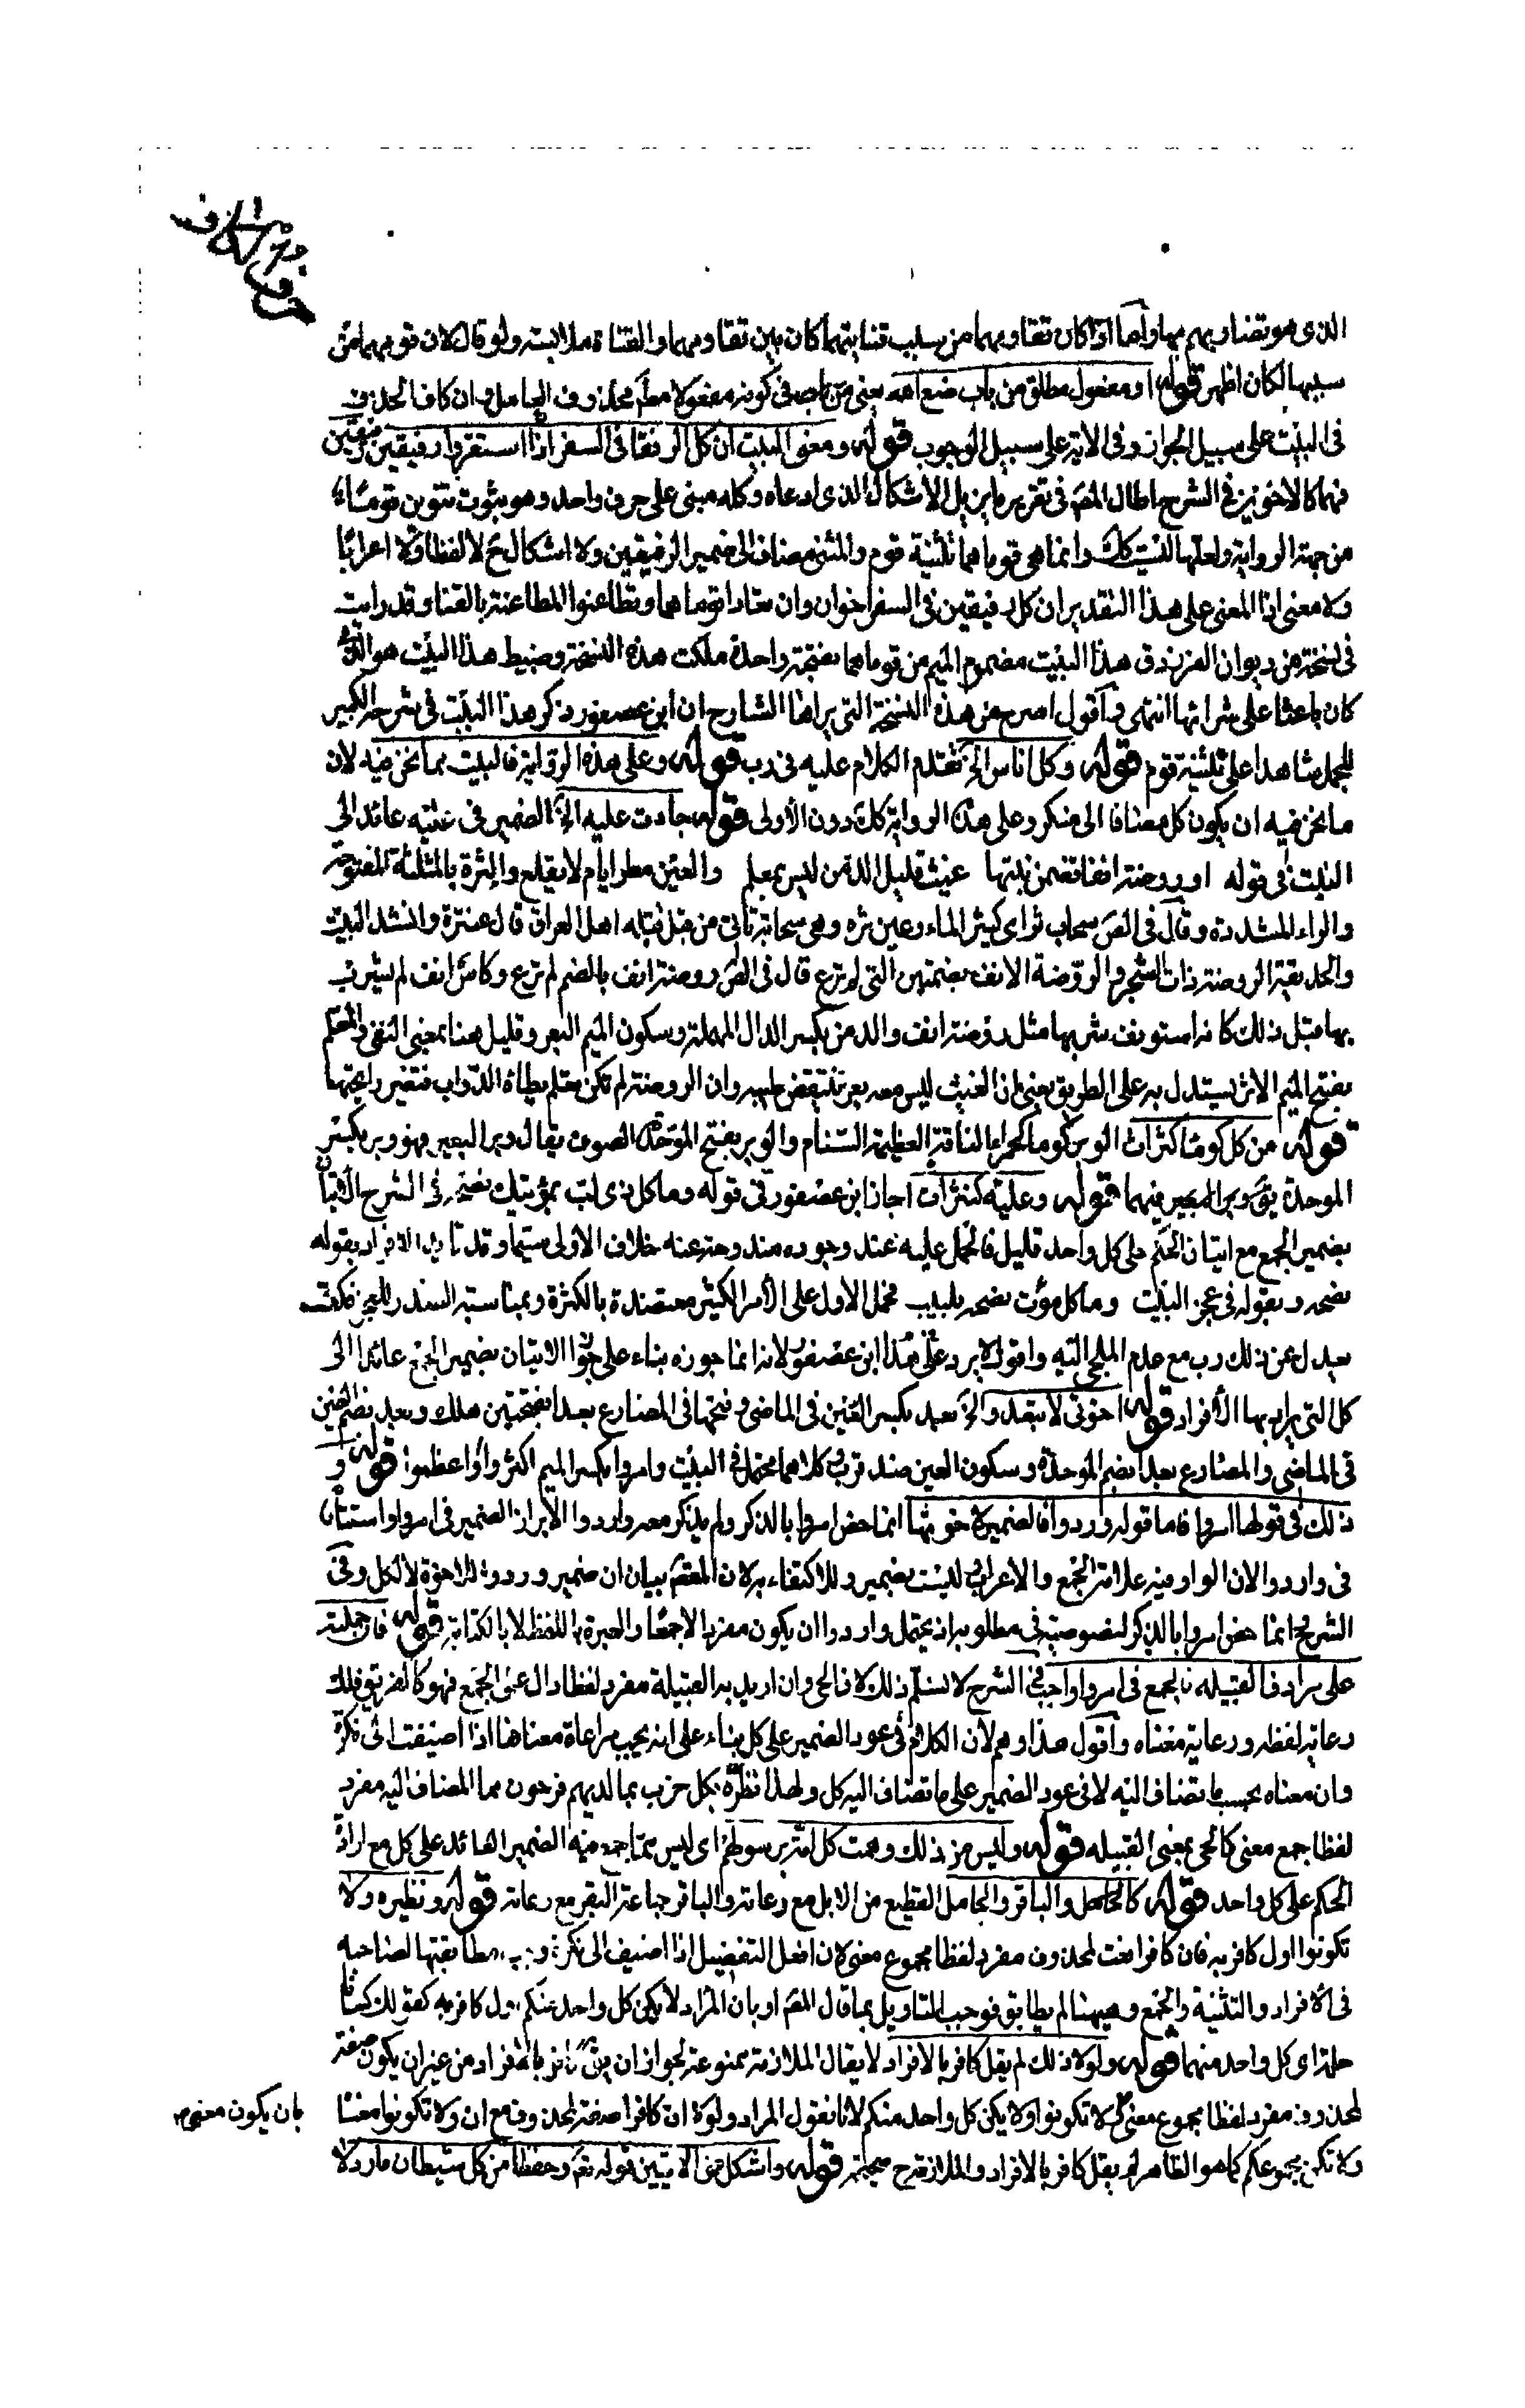 الذى هو تضاربهم بهما واما اذا كان تقاومهما من سلب قنايتهما كان بين تقاومهما والقناة ملابسته ولو قال لان قومهما من
سببها لكان اظهر قوله او مفعول مطلق من باب صنع الله يعنى من باب فى كونه مفعولا مط محذوف العامل وان كان الحذف
فى البيت على سبيل الجواز وفى الاية على سبيل الوجوب قوله ومعنى البيت ان كل الرفقا فى السفر اذا استقروا رفيقين رفيقين
فهما كالاخوين فى الشرح اطال المص فى تقريره ما يزيل الاشكال الذى ادعاه وكله مبنى على حرف واحد وهو ثبوت تنوين قوما
من جهة الرواية ولعلها ليست كك وانما هى قوما هما تثنية قوم والمثنى مضاف الى ضمير الرفيقين ولا اشكال ح لا لفظا ولا اعرابا
ولا معنى اذ المعنى على هذا التقدير ان كل رفيقين فى السفر اخوان وان تعادا قوماهما وتطاعنوا المطاعنة بالقنا وقد رايت
فى نسخة من ديوان الفرزدق هذا البيت مضموم الميم من قوماهما بفتحة واحدة ملكت هذه النسخة وضبط هذا البيت هو الذى
كان باعثا على شرائها انتهى واقول اصرح من هذه النسخة التى يراها الشارح ان ابن عصفور ذكر هذا البيت فى شرحه الكبير
للجمل شاهدا على تثنية قوم قوله وكل اناس الخ تقدم الكلام عليه فى رب قوله وعلى هذه الرواية فالبيت مما نحن فيه لان
ما نحن فيه ان يكون كل مضافا الى منكر وعلى هذه الرواية كك دون الأولى قوله جادت عليه الخ الضمير فى عليه عائد الى
البيت فى قوله او روضة انفا تضمن نبتها غيث قليل الدمن ليس بمعلم والعين مطر ايام لا يقلع والثرة بالمثلثة المفتوحة
والراء المشددة وقال فى الص سحاب ثر اى كثير الماء وعين ثره وهى سحابة تاتى من قبل قبله اهل العراق قال عنترة وانشد البيت
والحديقة الروضة ذات الشجر والروضة الانف بضمتين التى لم ترع قال فى الص روضة انف بالضم لم ترع وكاس انف لم يشرب
بها قبل ذلك كانه استونف شربها مثل روضة انف والدمن بكسر الدال المهملة وسكون الميم البعر وقليل هنا بمعنى النفى والمعلم
بفتح الميم الاثر يستدل به على الطريق يعنى ان الغيث ليس معه بعر وان الروضة لم تكن بمعلم يطاه الدواب فتغير رايحتها
قوله من كل كوماء كثرات الوبر كوما كحمراء الناقة العظيمة السنام والوبر بفتح الموحدة الصوف يقال وبر البعير فهو وبر بكسر
الموحدة قوله وعليه كثرات اجاز ابن عصفور فى قوله وما كل ذى لب بمؤتيك نصحه فى الشرح الاتيان
بضمير الجمع مع اتيان الحكم على كل واحد قليل فالحمل عليه عند وجوده مندوحة عنه خلاف الاولى سيما وقد تايد الافراد بقوله
نصحه وبقوله فى عجز البيت وما كل مؤت نصحه بلبيب فحمل الاول على الأمر الكثير معتضدة بالكثرة وبمناسبة الصدر للعجز فكيف
يعدل عن ذلك رب مع عدم الملجى اليه واقول لا يرد على هذا ابن عصفور لانه انما جوزه بناء على جواز الاتيان بضمير الجمع عائدا الى
كل التى يراد بها الأفراد قوله اخوتى لا تبعدوا الخ بعد بكسر العين فى الماضى وفتحها فى المضارع بعدا بفتحتين هلك وبعد بضم العين
فى الماضى والمضارع بعدا بضم الموحدة وسكون العين ضد قرب وكلاهما محتمل فى البيت وامروا بكسر الميم اكثروا او اعظموا قوله و
ذلك فى قولها امروا فاما قوله وردوا فالضمير لاخوتها انما خص امروا بالذكر ولم يذكر معه واردوا الابراز الضمير فى امروا واستتاره
فى واردوا لان الواو فيه علامة الجمع والاعراب ليست بضمير وللاكتفاء به لان المقص بيان ان ضمير وردوا للاخوة لا لكل وفى
الشرح انما خص امروا بالذكر لنصوصيته فى مطلوبه اذ يحتمل واردوا ان يكون مفردا لا جمعا والعبرة باللفظ لا بالكتابة قوله فان حملته
على مرادف القبيله فالجمع فى امروا واجب فى الشرح لا نسلم ذلك لان الحى وان اريد به القبيلة مفرد لفظا دال على الجمع فهو كالفريق فلك
رعاية لفظه ورعاية معناه واقول هذا وهم لان الكلام فى عود الضمير على كل بناء على انه يجب مراعاة معناها اذا اضيفت الى نكرة
وان معناه بحسب ما تضاف اليه لا فى عود الضمير على ما تضاف اليه كل ولهذا نظره بكل حزب بما لديهم فرحون مما المضاف اليه مفرد
لفظا جمع معنى كالحى بمعنى القبيله قوله وليس من ذلك وهمت كل امة برسولهم اى ليس مما جمع فيه الضمير العائد على كل مع ارادة
الحكم على كل واحد قوله كالجامل والباقر والجامل القطيع من الابل مع رعاته والباقر جماعة البقر مع رعاته قوله ونظيره ولا
تكونوا اول كافر به فان كافر نعت لمحذوف مفرد لفظا مجموع معنى لان افعل التفضيل اذا اضيف الى نكرة مطابقتها لصاحبه
فى الافراد والتثنية والجمع وههنا لم يطابق فوجب التاويل بما قال المص او بان المراد لا يكن كل واحد منكم اول كافر به كقولك كسانا
حلة اى كل واحد منهما قوله ولولا ذلك لم يقل كافر بالافراد لا يقال الملازمة ممنوعة لجواز ان بالافراد من غير ان يكون صفة
لمحذوف مفرد لفظا مجموع معنى لا تكونوا ولا يكن كل واحد منكم لانا نقول المراد ولولا ان كافر صفة لمحذوف مع ان ولا تكونوا معنا
بان يكون معنى
ولا تكن مجموعكم كما هو الظاهر لم يقل كافر بالافراد والملازمة ح صحيحة قوله واشكل من الايتين قوله تع وحفظا من كل شيطان مارد لا